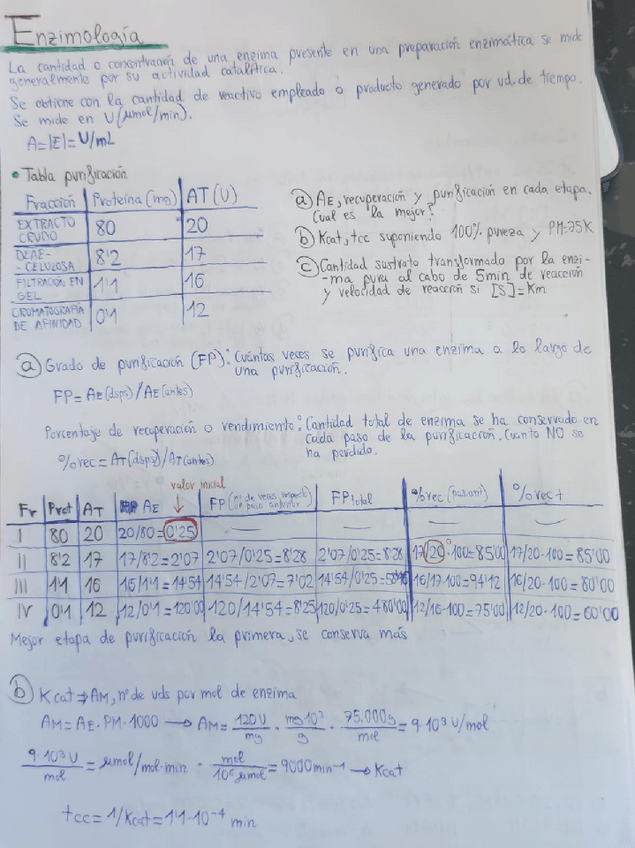 Enzimología
La cantidad o concentración de una enzima presente en una preparación enzimática se mide
generalmente por su actividad catalítica.
Se obtiene con la cantidad de reactivo empleado o producto generado por ud. de tiempo.
Se mide en U (μmol/min).
A=|E|= U/mL
• Tabla purificación
Fracción Proteína (mg) AT (U)
EXTRACTO CRUDO 80 20
DEAE-CELULOSA 8'2 17
FILTRACIÓN EN GEL 1'1 16
CROMATOGRAFÍA DE AFINIDAD 0'1 12
a) AE, recuperación y purificación en cada etapa.
Cual es la mejor?
b) Kcat, tcc suponiendo 100% pureza y PM=75K
c) Cantidad sustrato transformado por la enzi-
-ma pura al cabo de 5min de reacción
y velocidad de reacción si [S]=Km
a) Grado de purificación (FP): Cuántas veces se purifica una enzima a lo largo de
una purificación.
FP= AE (dsps) / AE (antes)
Porcentaje de recuperación o rendimiento: Cantidad total de enzima se ha conservado en
cada paso de la purificación. Cuanto NO se
ha perdido.
%rec = AT (dsps) / AT (antes)
valor inicial
Fr Prot AT AE FP (nº de veces respecto de paso anterior) FP total %rec (paso ni) %rec t
I 80 20 20/80=0'25 — — — —
II 8'2 17 17/8'2=2'07 2'07/0'25=8'28 2'07/0'25=8'28 17/20·100=85'00 17/20·100=85'00
III 1'1 16 16/1'1=14'54 14'54/2'07=7'02 14'54/0'25= 16/17·100=94'12 16/20·100=80'00
IV 0'1 12 12/0'1=120'00 120/14'54=8'25 120/0'25=480'00 12/16·100=75'00 12/20·100=60'00
Mejor etapa de purificación la primera, se conserva más
b) Kcat ⇒ AM, nº de uds por mol de enzima
AM = AE·PM·1000 → AM= 120U/mg · mg10³/g · 75.000g/mol = 9·10³ U/mol
9·10³ U/mol = μmol/mol·min · mol/10⁶ μmol = 9000min⁻¹ → Kcat
tcc = 1/Kcat = 1'1·10⁻⁴ min